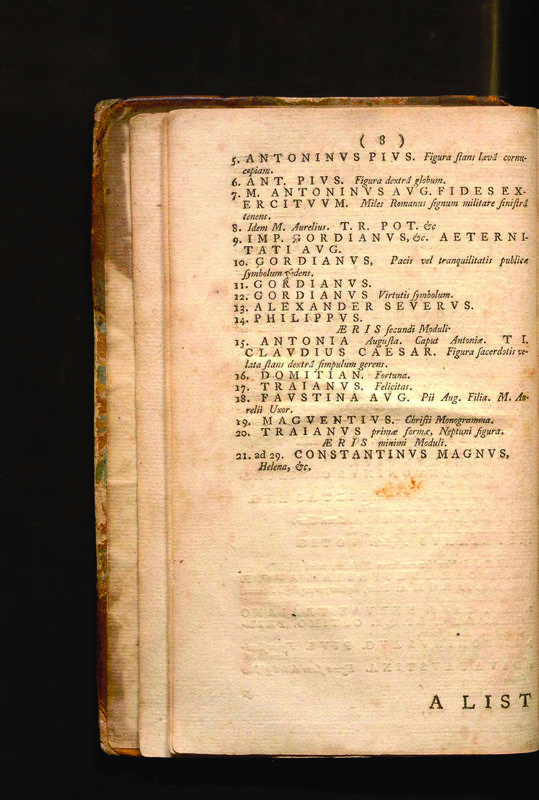 ( 8 )
5. ANTONINVS PIVS. Figura stans lævâ cornu-
copiam.
6. ANT. PIVS. Figura dextrâ globum.
7. M. ANTONINVS AVG. FIDES EX-
ERCITVVM. Miles Romanus signum militare sinistrâ
tenens.
8. Idem M. Aurelius. T. R. POT. &c
9. IMP. GORDIANVS, &c. AETERNI-
TATI AVG.
10. GORDIANVS, Pacis vel tranquilitatis publicæ
symbolum sedens.
11. GORDIANVS.
12. GORDIANVS Virtutis symbolum.
13. ALEXANDER SEVERVS.
14. PHILIPPVS.
ÆRIS secundi Moduli.
15. ANTONIA Augusta. Caput Antoniæ. TI.
CLAVDIUS CAESAR. Figura sacerdotis ve-
lata stans dextrâ simpulum gerens.
16. DOMITIAN. Fortuna.
17. TRAIANVS. Felicitas.
18. FAVSTINA AVG. Pii Aug. Filia. M. Au-
relii Uxor.
19. MAGVENTIVS. Christi Monogramma.
20. TRAIANVS primæ formæ, Neptuni figura.
ÆRIS minimi Moduli.
21. ad 29. CONSTANTINVS MAGNVS,
Helena, &c.
A LIST